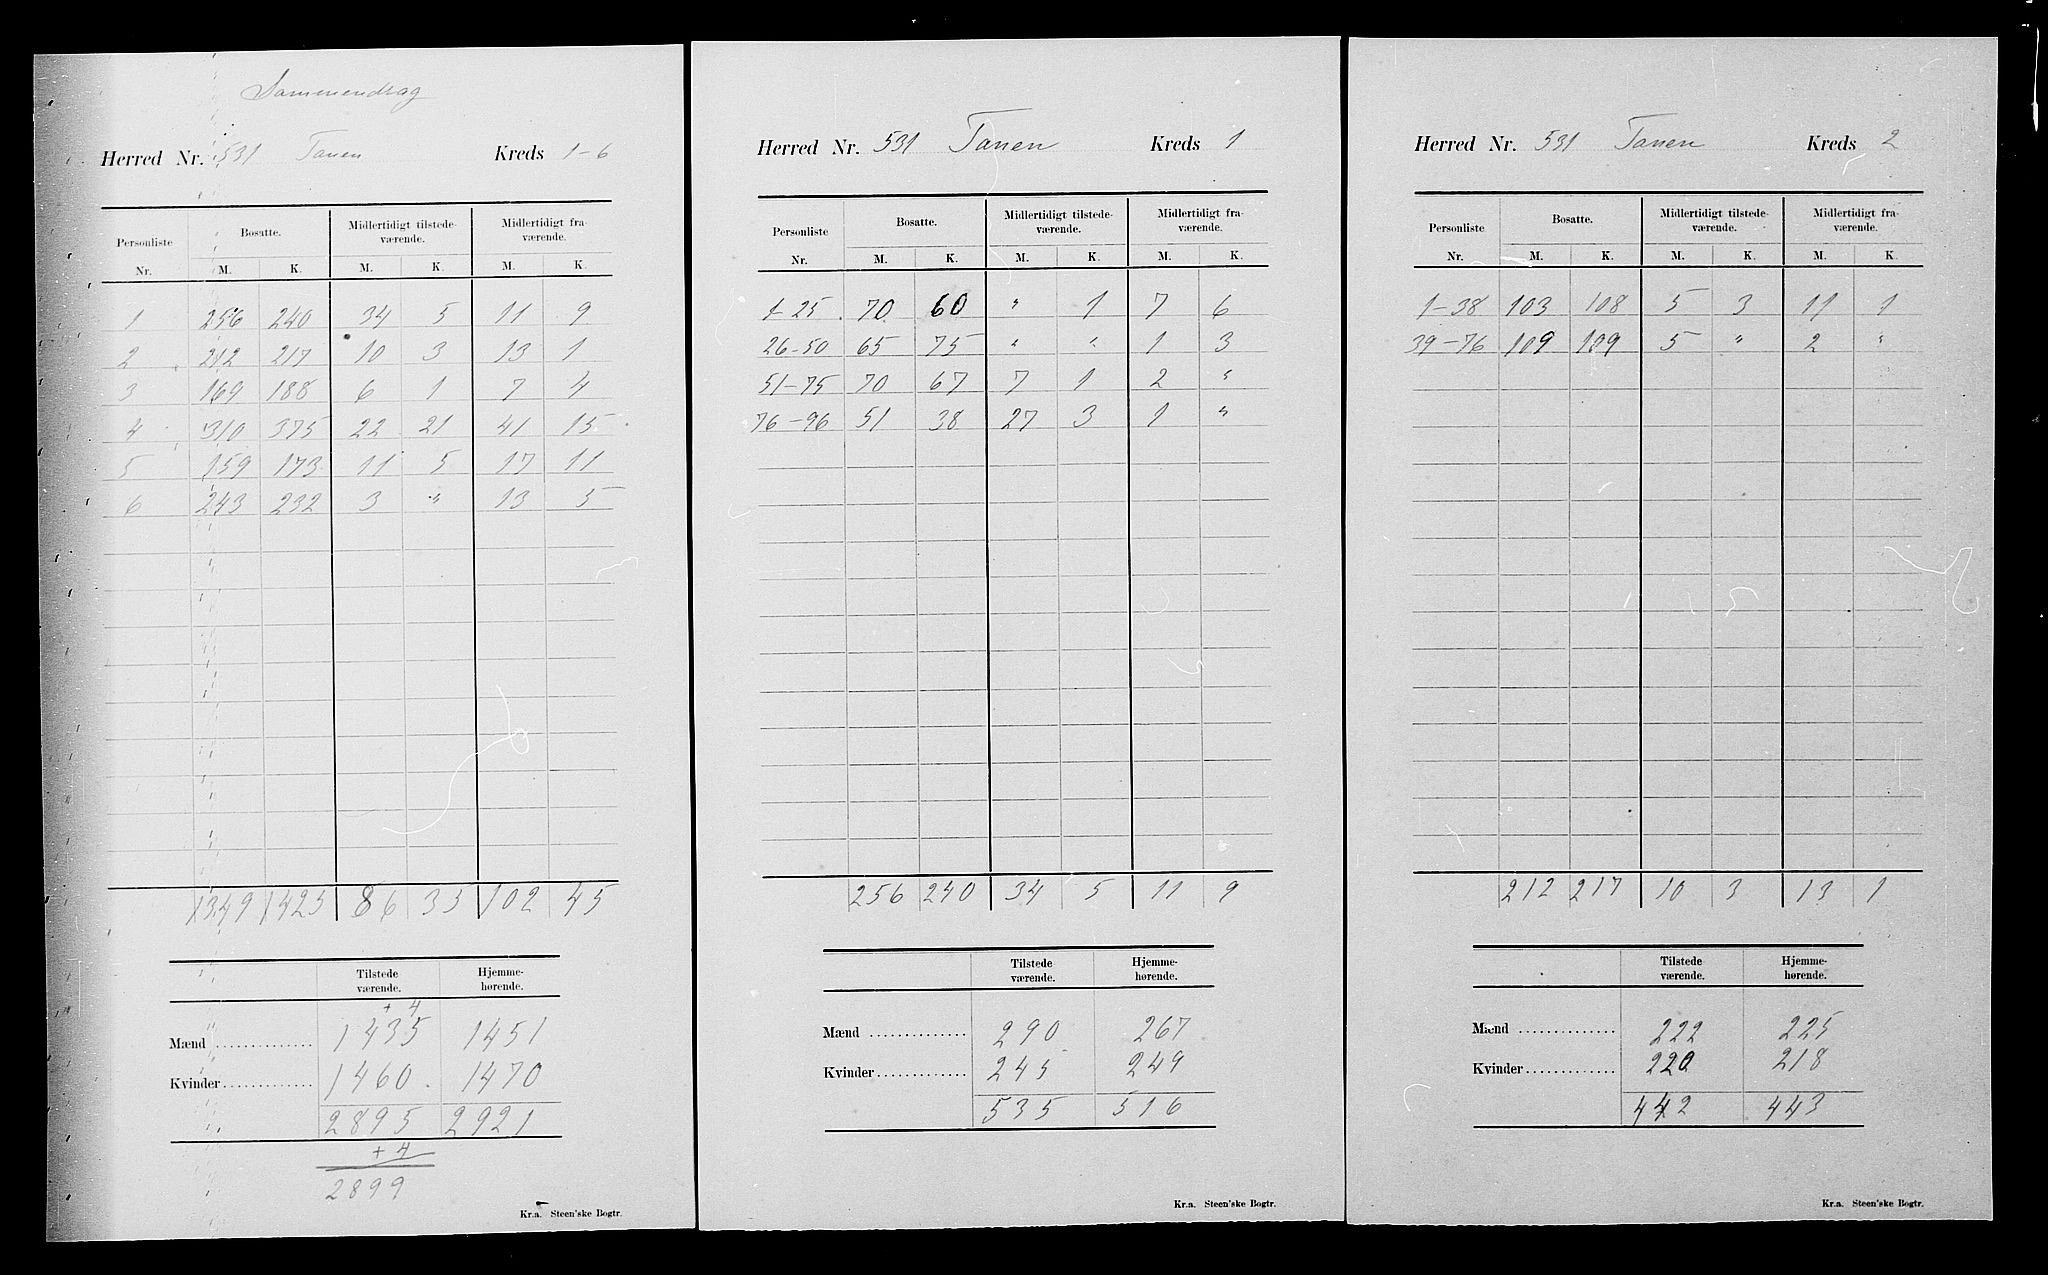 Sammendrag
Herred Nr. 531 Tanen Kreds 1-6
Personliste Nr. | Bosatte. M. K. | Midlertidigt tilstedeværende. M. K. | Midlertidigt fraværende. M. K.
1 256 240 34 5 11 9
2 212 217 10 3 13 1
3 169 188 6 1 7 4
4 310 375 22 21 41 15
5 159 173 11 5 17 11
6 243 232 3 " 13 5
1349 1425 86 35 102 45
Tilstede værende. Hjemmehørende.
+ 4
Mænd 1435 1451
Kvinder 1460 1470
2895 2921
+ 4
2899
Kr.a. Steen'ske Bogtr.
Herred Nr. 531 Tanen Kreds 1
Personliste Nr. | Bosatte. M. K. | Midlertidigt tilstedeværende. M. K. | Midlertidigt fraværende. M. K.
1-25 70 60 " 1 7 6
26-50 65 75 " " 1 3
51-75 70 67 7 1 2 "
76-96 51 38 27 3 1 "
256 240 34 5 11 9
Tilstede værende. Hjemmehørende.
Mænd 290 267
Kvinder 245 249
535 516
Kr.a. Steen'ske Bogtr.
Herred Nr. 531 Tanen Kreds 2
Personliste Nr. | Bosatte. M. K. | Midlertidigt tilstedeværende. M. K. | Midlertidigt fraværende. M. K.
1-38 103 108 5 3 11 1
39-76 109 109 5 " 2 "
212 217 10 3 13 1
Tilstede værende. Hjemmehørende.
Mænd 222 225
Kvinder 220 218
442 443
Kr.a. Steen'ske Bogtr.